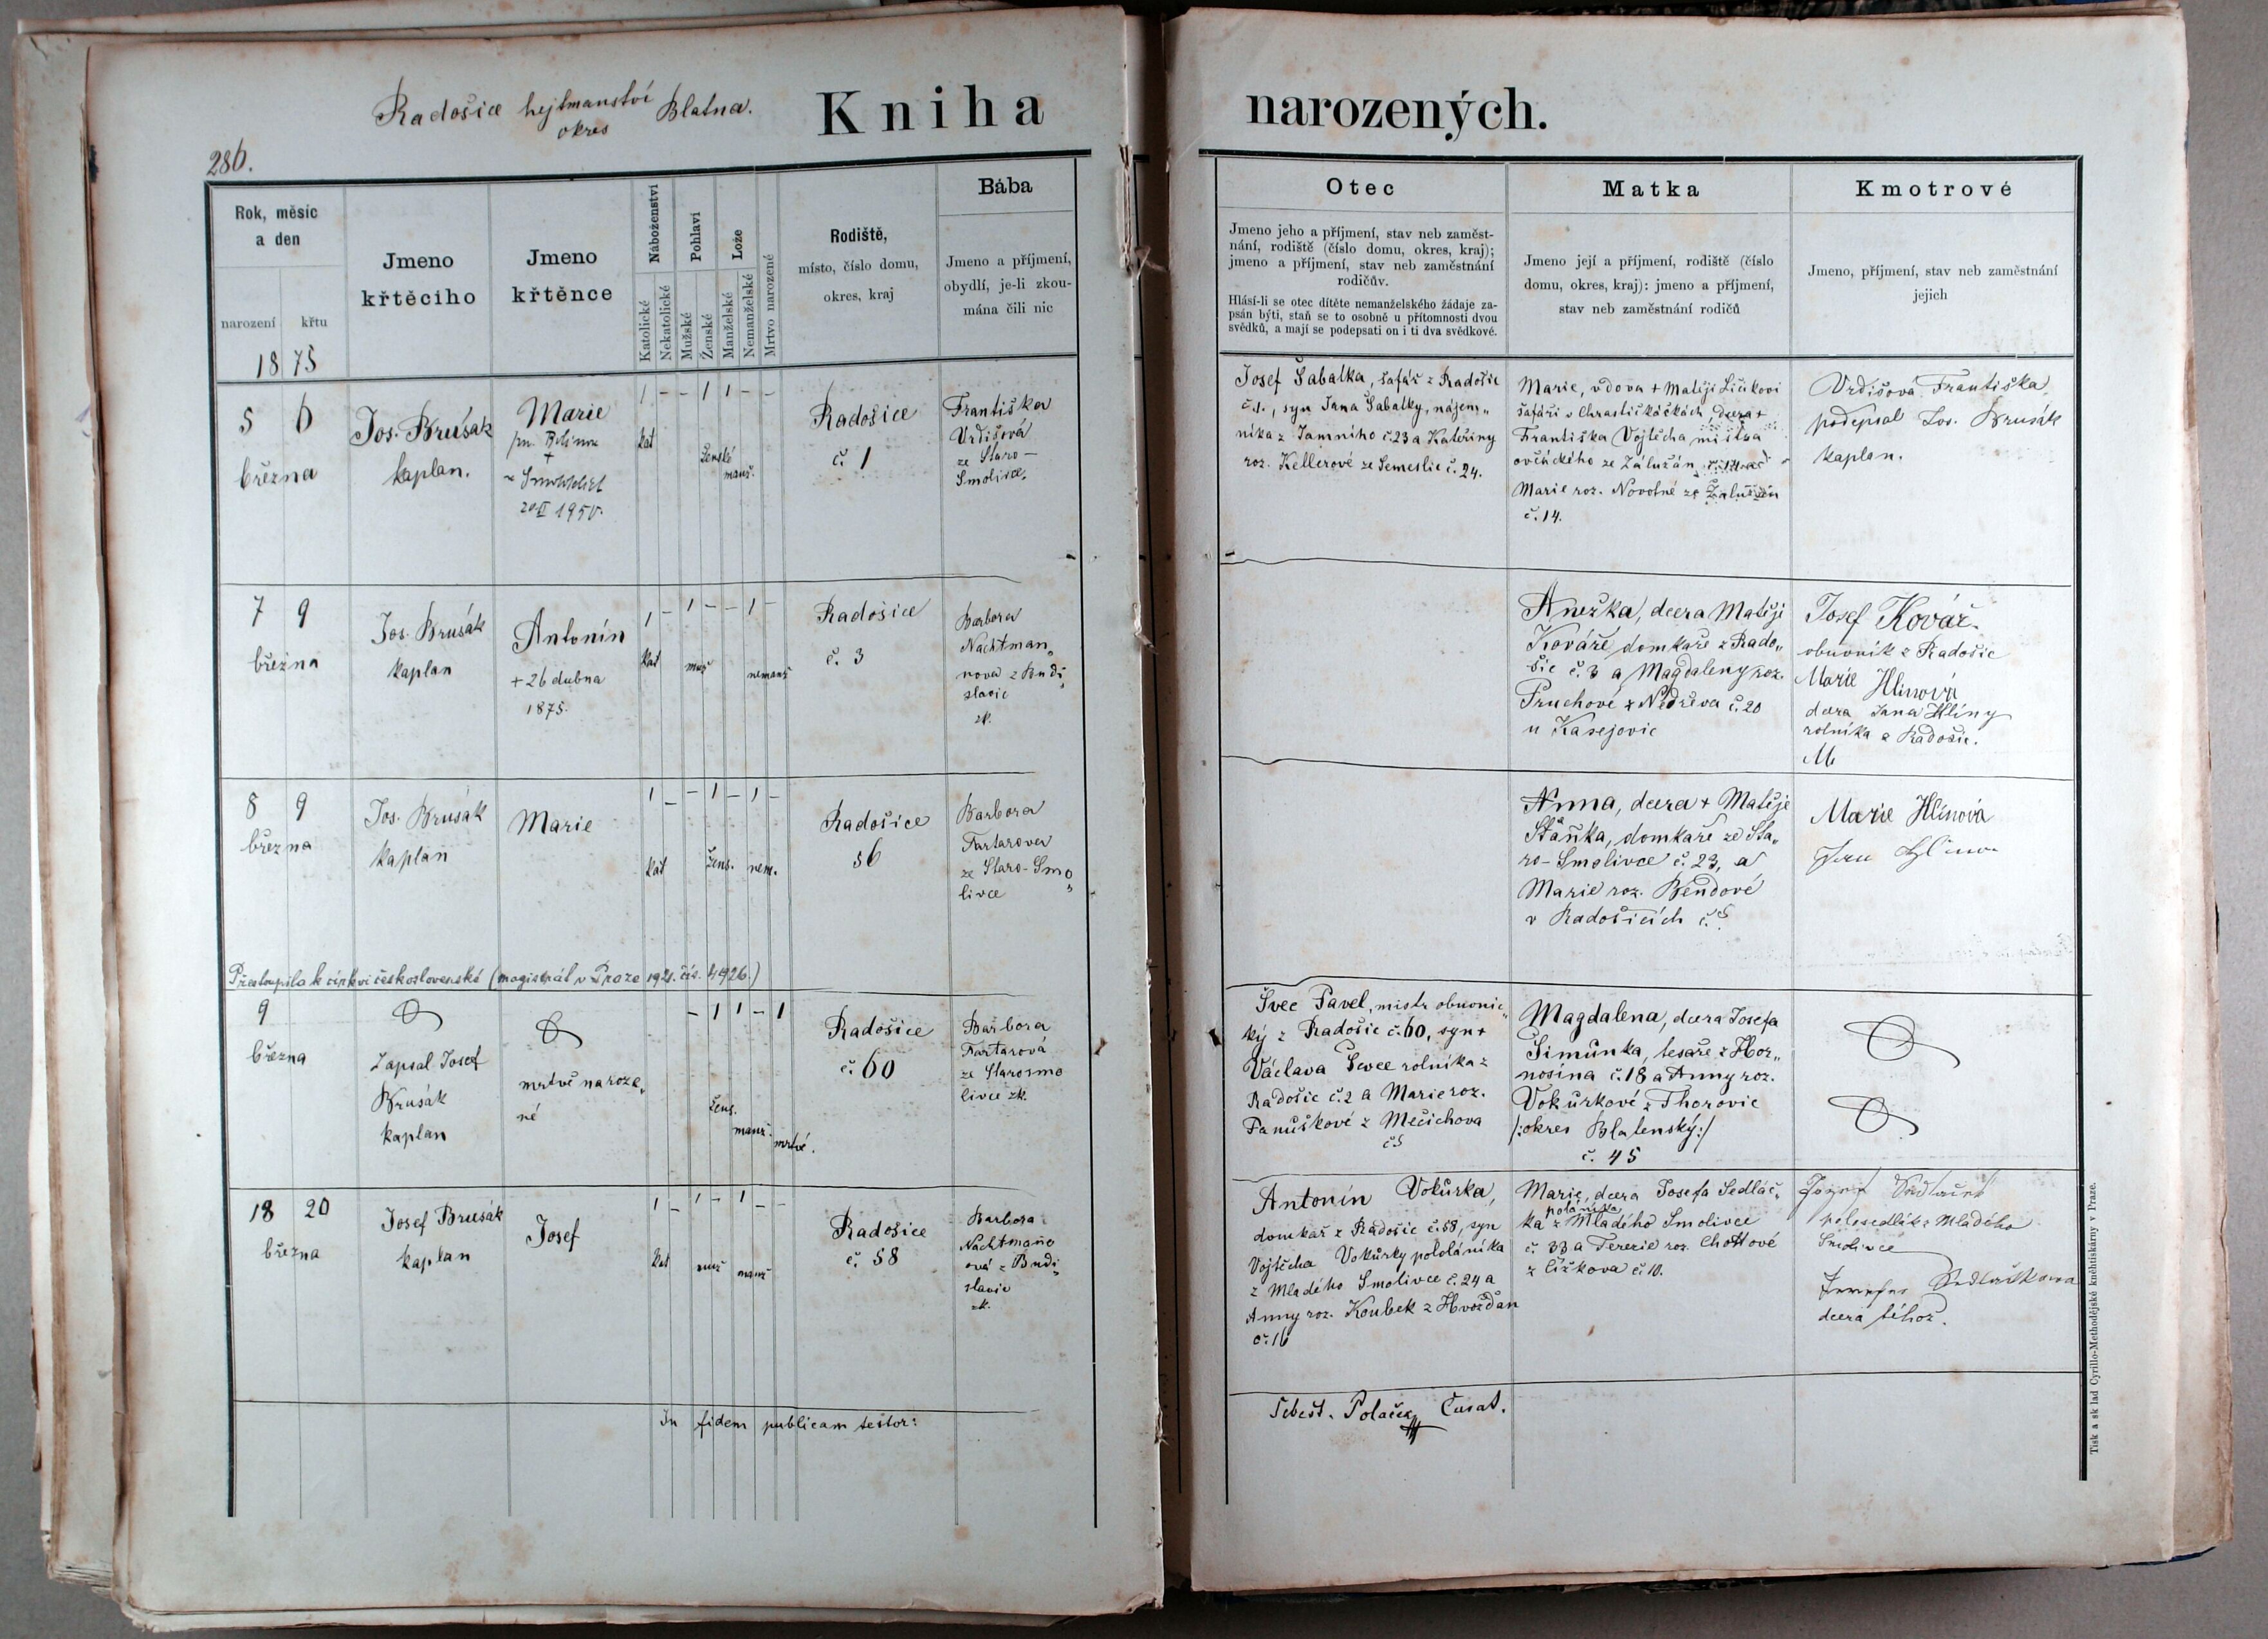 Radošice hejtmanství Blatna.
okres
Kniha narozených.
286.
Rok, měsíc
a den
narození křtu
1875
Jmeno
křtěciho
Jmeno
křtěnce
Náboženství
Katolické
Nekatolické
Pohlaví
Mužské
Ženské
Lože
Manželské
Nemanželské
Mrtvo narozené
Rodiště,
místo, číslo domu,
okres, kraj
Bába
Jmeno a příjmení,
obydlí, je-li zkou-
mána čili nic
Otec
Jmeno jeho a příjmení, stav neb zaměst-
nání, rodiště (číslo domu, okres, kraj);
jmeno a příjmení, stav neb zaměstnání
rodičův.
Hlásí-li se otec dítěte nemanželského žádaje za-
psán býti, staň se to osobně u přítomnosti dvou
svědků, a mají se podepsati on i ti dva svědkové.
Matka
Jmeno její a příjmení, rodiště (číslo
domu, okres, kraj): jmeno a příjmení,
stav neb zaměstnání rodičů
Kmotrové
Jmeno, příjmení, stav neb zaměstnání
jejich
5 6
března
Jos. Brusák
kaplan.
Marie
+
20/II 1950.
1 - - 1 1 - -
kat
Ženské
manž.
Radošice
č. 1
Františka
Vrdišová
ze Staro-
Smolivce,
Josef Šabatka, šafář z Radošic
č. 1., syn Jana Šabatky, nájem„
níka z Jamního č. 23 a Kateřiny
roz. Kellerové ze Semeslic č. 24.
Marie, vdova + Matěji
šafáři v dcera +
Františka Vojtěcha mistra
ovčáckého ze Zálužán
Marie roz. Novotné ze Zalužán
č. 14.
Vrdišová Františka,
podepsal Jos. Brusák
kaplan.
7 9
března
Jos. Brusák
kaplan
Antonín
+ 26 dubna
1875.
1 - 1 - - 1 -
kat muž nemanž
Radošice
č. 3
Barbora
Nachtman„
nova z Budi„
slavic
zk.
Anežka, dcera Matěje
Kováře, domkaře z Rado„
šic č. 3 a Magdaleny roz.
Pruchové z Nedřeva č. 20
u Kasejovic
Josef Kovář.
obuvník z Radošic
Marie Hlinová
dcera Jana Hliny
rolníka z Radošic.
M
8 9
března
Jos. Brusák
kaplan
Marie
1 - - 1 - 1 -
kat Žens. nem.
Radošice
56
Barbora
Tartarova
ze Staro-Smo„
livce
Anna, dcera + Matěje
Staňka, domkaře ze Sta„
ro-Smolivce č. 23, a
Marie roz. Bendové
v Radošicích č. 5.
Marie Hlinová
Přestoupila k církvi československé (magistrát v Praze 1921. čís. 4926.)
9
března
Zapsal Josef
Brusák
kaplan
mrtvě naroze„
né
- 1 1 - 1
Žens.
manž.
mrtvé.
Radošice
č. 60
Barbora
Tartarová
ze Starosmo
livce zk.
Švec Pavel, mistr obuvnic„
ký z Radošic č. 60, syn +
Václava Švece rolníka z
Radošic č. 2 a Marie roz.
Panuškové z Mečichova
č 5
Magdalena, dcera Josefa
Šimůnka, tesaře z Hor„
nosína č. 18 a Anny roz.
Vokurkové z Thorovic
/:okres Blatenský:/
č. 45
18 20
března
Josef Brusák
kaplan
Josef
1 - 1 - 1 - -
Kat muž manž
Radošice
č. 58
Barbora
Nachtmano
ová z Budi„
slavic
zk.
Antonín Vokůrka,
domkař z Radošic č. 58, syn
Vojtěcha Vokůrky pololánika
z Mladého Smolivce č. 24 a
Anny roz. Koubek z Hvožďan
č. 16
Marie, dcera Josefa Sedláč„
pololánika
ka z Mladého Smolivce
č. 33 a Terezie roz. Chottové
z Čížkova č. 10.
Josef Sedlaček
polosedlák z Mladého
Smolivce
Sedlačkova
dcera téhož.
In fidem publicam testor:
Šebest. Polaček Curat.
Tisk a sklad Cyrillo-Methodějské kněhtiskárny v Praze.